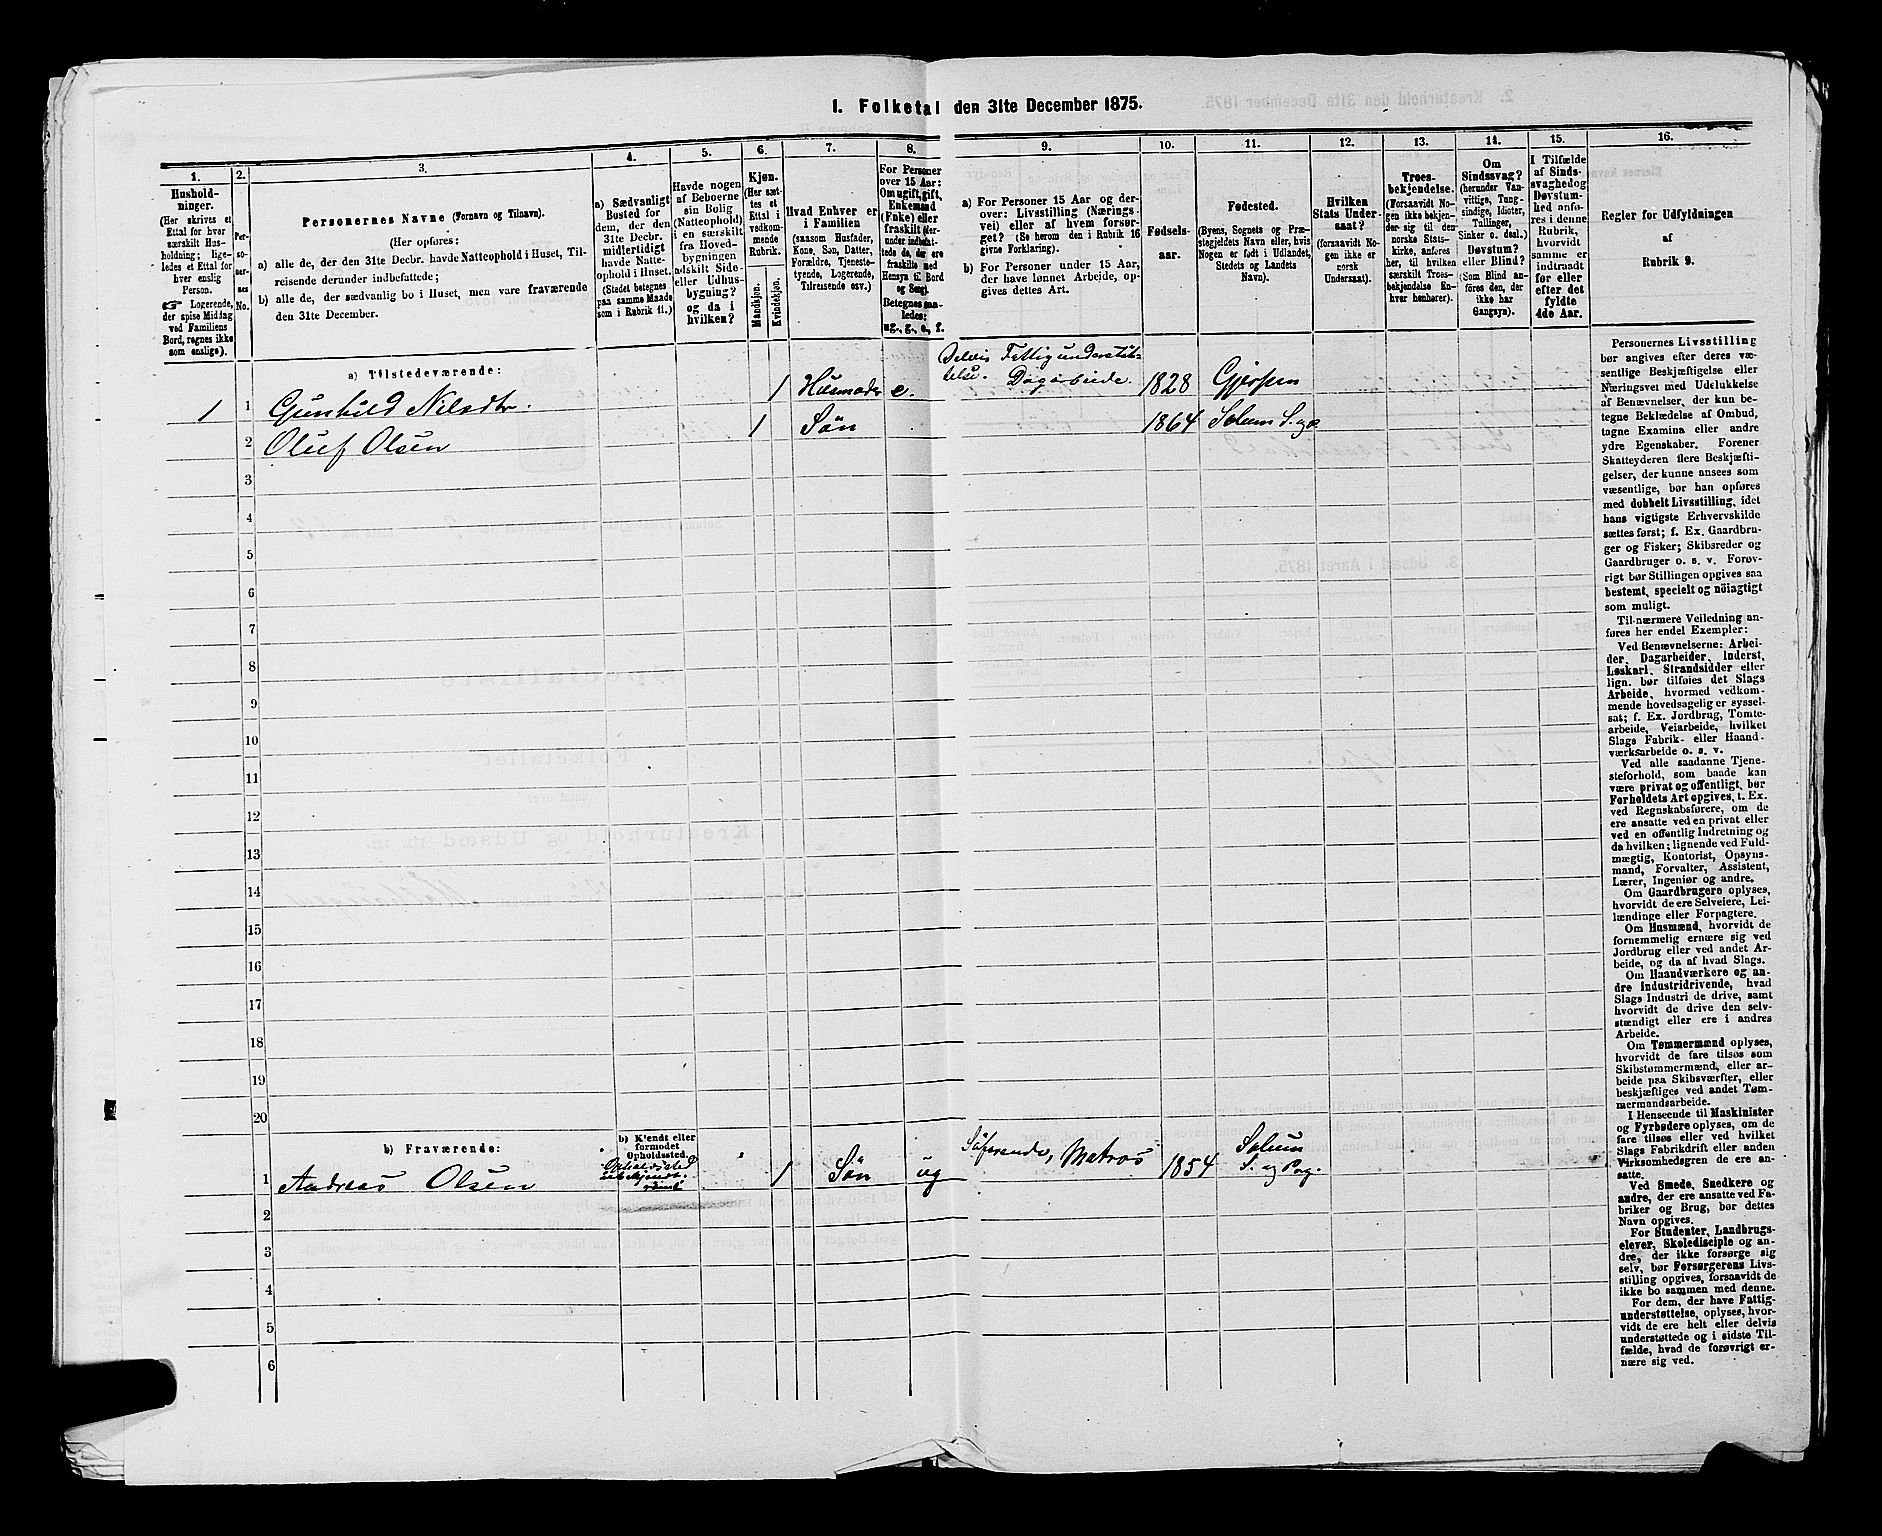 1. Folketal den 31te December 1875.
1.
Hushold-
ninger.
(Her skrives et
Ettal for hver
særskilt Hus-
holdning; lige-
ledes et Ettal for
hver enslig
Person.
☞ Logerende,
der spise Middag
ved Familiens
Bord, regnes ikke
som enslige).
2.
Per-
so-
ner-
nes
No.
3.
Personernes Navne (Fornavn og Tilnavn).
(Her opføres:
a) alle de, der den 31te Decbr. havde Natteophold i Huset, Til-
reisende derunder indbefattede;
b) alle de, der sædvanlig bo i Huset, men vare fraværende
den 31te December.
4.
a) Sædvanligt
Bosted for
dem, der den
31te Decbr.
midlertidigt
havde Natte-
ophold i Huset.
(Stedet betegnes
paa samme Maade
som i Rubrik 11.)
5.
Havde nogen
af Beboerne
sin Bolig
(Natteophold)
i en særskilt
fra Hoved-
bygningen
adskilt Side-
eller Udhus-
bygning?
og da i
hvilken?
6.
Kjøn.
(Her sæt-
tes et
Ettal i
vedkom-
mende
Rubrik.
Mandkjøn.
Kvindekjøn.
7.
Hvad Enhver er
i Familien
(saasom Husfader,
Kone, Søn, Datter,
Forældre, Tjeneste-
tyende, Logerende,
Tilreisende osv.)
8.
For Personer
over 15 Aar:
Om ugift, gift,
Enkemand
(Enke) eller
fraskilt (her-
under indbefat-
tede de, der ere
fraskilte med
Hensyn til Bord
og Seng).
Betegnes saa-
ledes:
ug., g., e., f.
9.
a) For Personer 15 Aar og der-
over: Livsstilling (Nærings-
vei) eller af hvem forsør-
get? (Se herom den i Rubrik 16
givne Forklaring).
b) For Personer under 15 Aar,
der have lønnet Arbeide, op-
gives dettes Art.
10.
Fødsels-
aar.
11.
Fødested.
(Byens, Sognets og Præ-
stegjeldets Navn eller, hvis
Nogen er født i Udlandet,
Stedets og Landets
Navn).
12.
Hvilken
Stats Under-
saat?
(forsaavidt No-
gen ikke er
norsk
Undersaat).
13.
Troes-
bekjendelse.
(Forsaavidt No-
gen ikke bekjen-
der sig til den
norske Stats-
kirke, anføres
her, til hvilken
særskilt Troes-
bekjendelse En-
hver henhører).
14.
Om
Sindssvag?
(herunder Van-
vittige, Tung-
sindige, Idioter,
Tullinger,
Sinker o. desl.)
Døvstum?
eller Blind?
(Som Blind an-
føres den, der
ikke har
Gangsyn).
15.
I Tilfælde
af Sinds-
svaghed og
Døvstum-
hed anfø-
res i denne
Rubrik,
hvorvidt
samme er
indtraadt
før eller
efter det
fyldte
4de Aar.
16.
Regler for Udfyldningen
af
Rubrik 9.
a) Tilstedeværende:
1 1 Gunhild Nilsdtr. 1 Husmoder e. Delvis Fattigunderstøt-
telse. Dagarbeide. 1828 Gjerpen
2 Oluf Olsen 1 Søn 1864 Solum S. og P
3
4
5
6
7
8
9
10
11
12
13
14
15
16
17
18
19
20
b) Fraværende:
b) Kjendt eller
formodet
Opholdssted.
1 Andreas Olsen Opholdssted
ubekjendt 1 Søn ug Søfarende, Matros 1854 Solum
S. og Prg.
2
3
4
5
6
Personernes Livsstilling
bør angives efter deres væ-
sentlige Beskjæftigelse eller
Næringsvei med Udelukkelse
af Benævnelser, der kun be-
tegne Beklædelse af Ombud,
tagne Examina eller andre
ydre Egenskaber. Forener
Skatteyderen flere Beskjæfti-
gelser, der kunne ansees som
væsentlige, bør han opføres
med dobbelt Livsstilling, idet
hans vigtigste Erhvervskilde
sættes først; f. Ex. Gaardbru-
ger og Fisker; Skibsreder og
Gaardbruger o. s. v. Forøv-
rigt bør Stillingen opgives saa
bestemt, specielt og nöiagtigt
som muligt.
Til nærmere Veiledning an-
føres her endel Exempler:
Ved Benævnelserne: Arbei-
der, Dagarbeider, Inderst,
Løskarl, Strandsidder eller
lign. bør tilføies det Slags
Arbeide, hvormed vedkom-
mende hovedsagelig er syssel-
sat; f. Ex. Jordbrug, Tomte-
arbeide, Veiarbeide, hvilket
Slags Fabrik- eller Haand-
værksarbeide o. s. v.
Ved alle saadanne Tjene-
steforhold, som baade kan
være privat og offentligt, bør
Forholdets Art opgives, t. Ex.
ved Regnskabsførere, om de
ere ansatte ved en privat eller
ved en offentlig Indretning og
da hvilken; lignende ved Fuld-
mægtig, Kontorist, Opsyns-
mand, Forvalter, Assistent,
Lærer, Ingeniør og andre.
Om Gaardbrugere oplyses,
hvorvidt de ere Selveiere, Lei-
lændinge eller Forpagtere.
Om Husmænd, hvorvidt de
fornemmelig ernære sig ved
Jordbrug eller ved andet Ar-
beide, og da af hvad Slags.
Om Haandværkere og an-
dre Industridrivende, hvad
Slags Industri de drive, samt
hvorvidt de drive den selv-
stændigt eller ere i andres
Arbeide.
Om Tømmermænd oplyses,
hvorvidt de fare tilsøs som
Skibstømmermænd, eller ar-
beide paa Skibsværfter, eller
beskjæftiges ved andet Tøm-
mermandsarbeide.
I Henseende til Maskinister
og Fyrbødere oplyses, om de
fare tilsøs eller ved hvilket
Slags Fabrikdrift eller anden
Virksomhedsgren de ere an-
satte.
Ved Smede, Snedkere og
andre, der ere ansatte ved Fa-
briker og Brug, bør dettes
Navn opgives.
For Studenter, Landbrugs-
elever, Skoledisciple og an-
dre, der ikke forsørge sig
selv, bør Forsørgerens Livs-
stilling opgives, forsaavidt de
ikke bo sammen med denne.
For dem, der have Fattig-
understøttelse, oplyses, hvor-
vidt de ere helt eller delvis
understøttede og i sidste Til-
fælde, hvad de forøvrigt er-
nære sig ved.